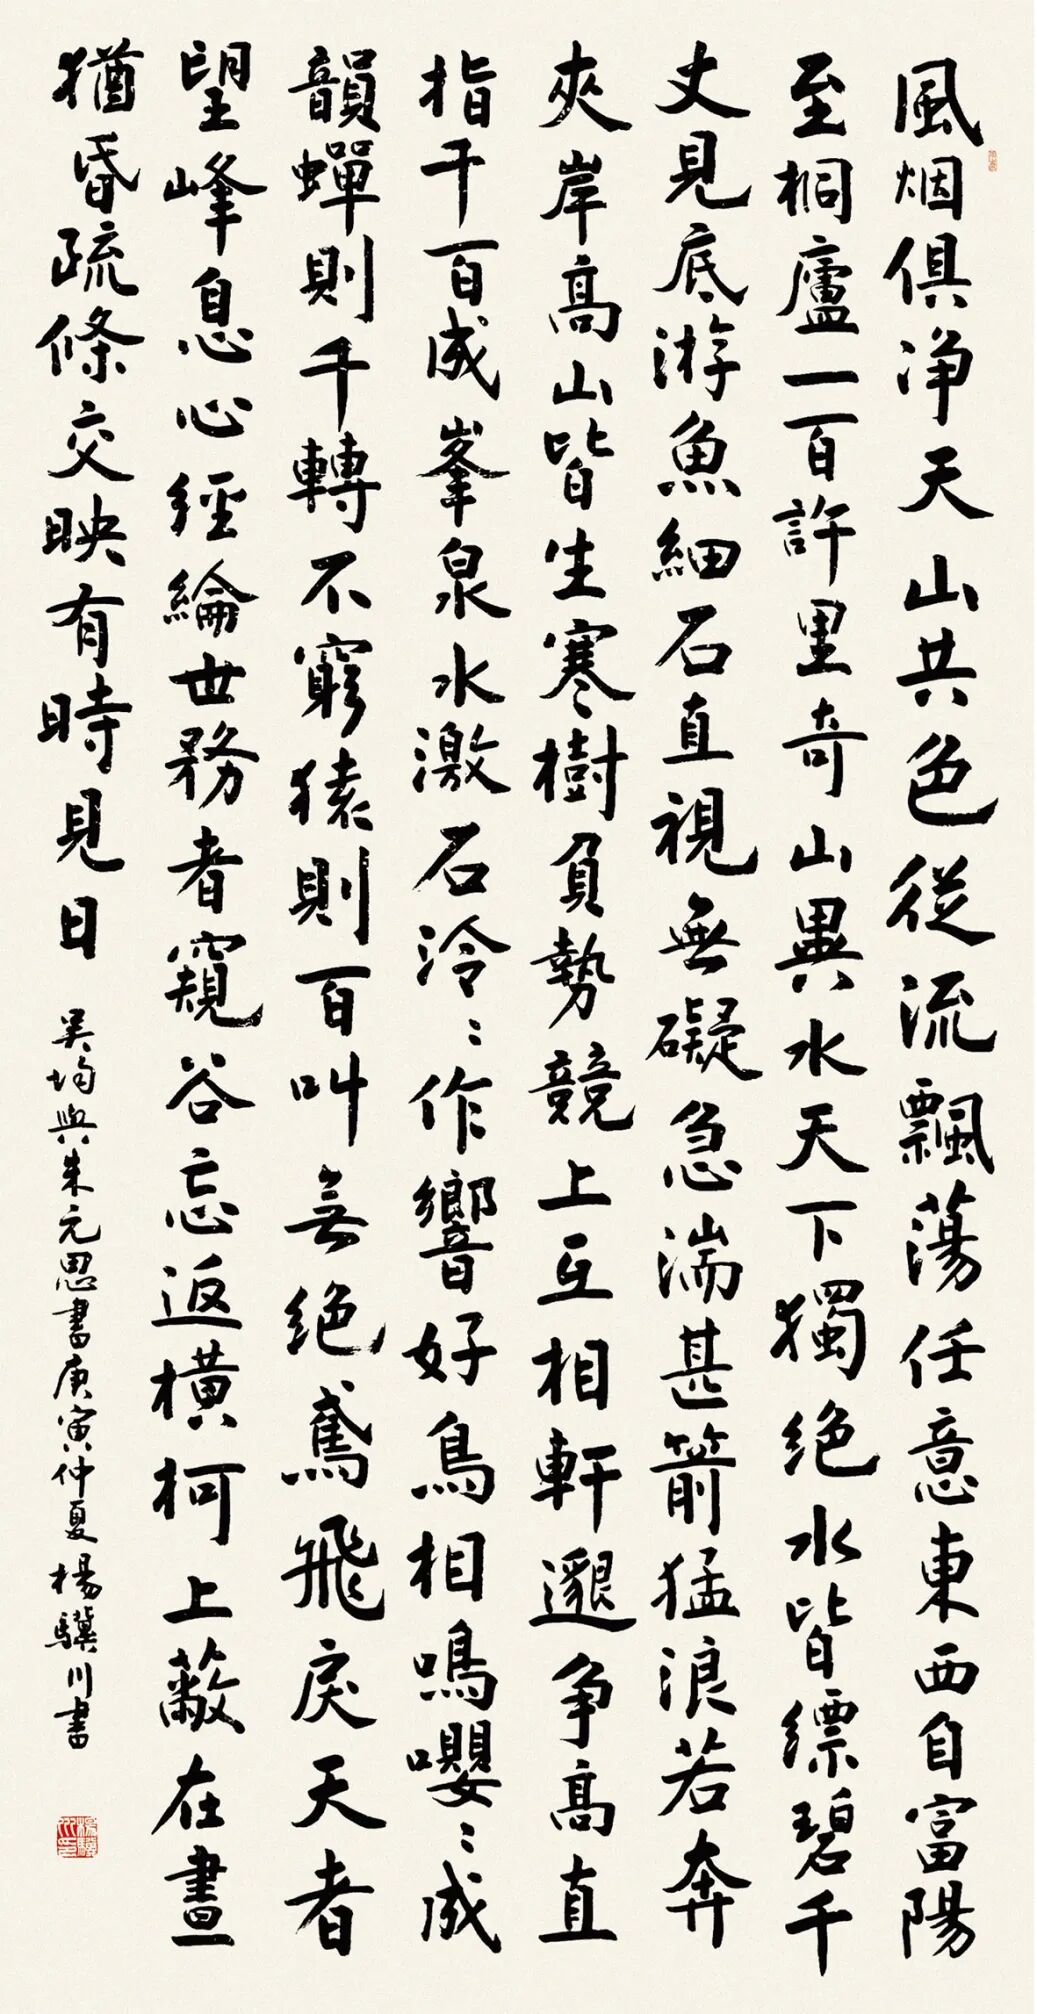 風烟俱淨天山共色從流飄蕩任意東西自富陽
至桐廬一百許里奇山異水天下獨絶水皆縹碧千
丈見底游魚細石直視無礙急湍甚箭猛浪若奔
夾岸高山皆生寒樹負勢競上互相軒邈争高直
指千百成峯泉水激石泠〻作響好鳥相鳴嚶〻成
韻蟬則千轉不窮猿則百叫無絶鳶飛戾天者
望峰息心經綸世務者窺谷忘返横柯上蔽在晝
猶昏疏條交映有時見日
吴均與朱元思書庚寅仲夏楊驥川書